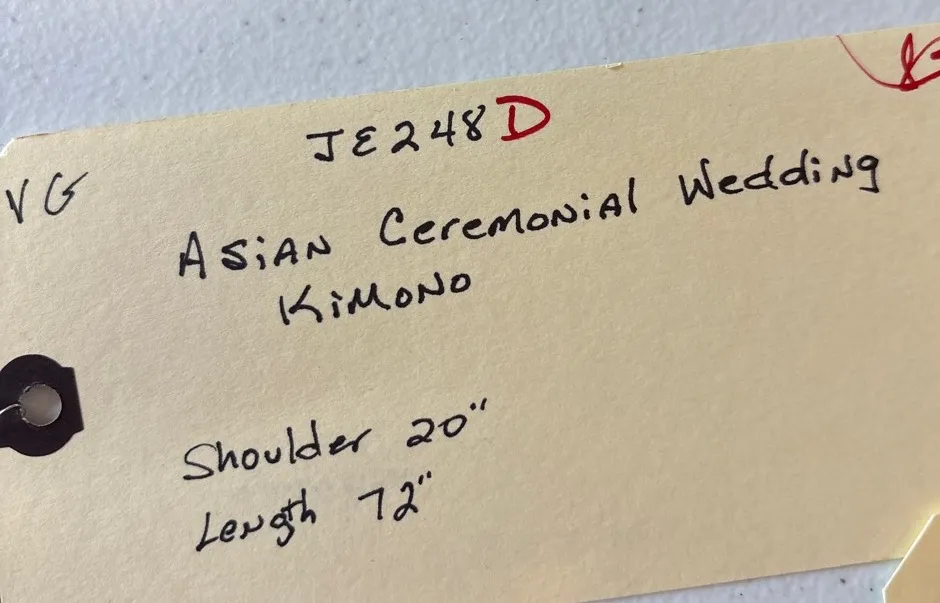 JE248D
VG
Asian Ceremonial Wedding
Kimono
Shoulder 20"
Length 72"